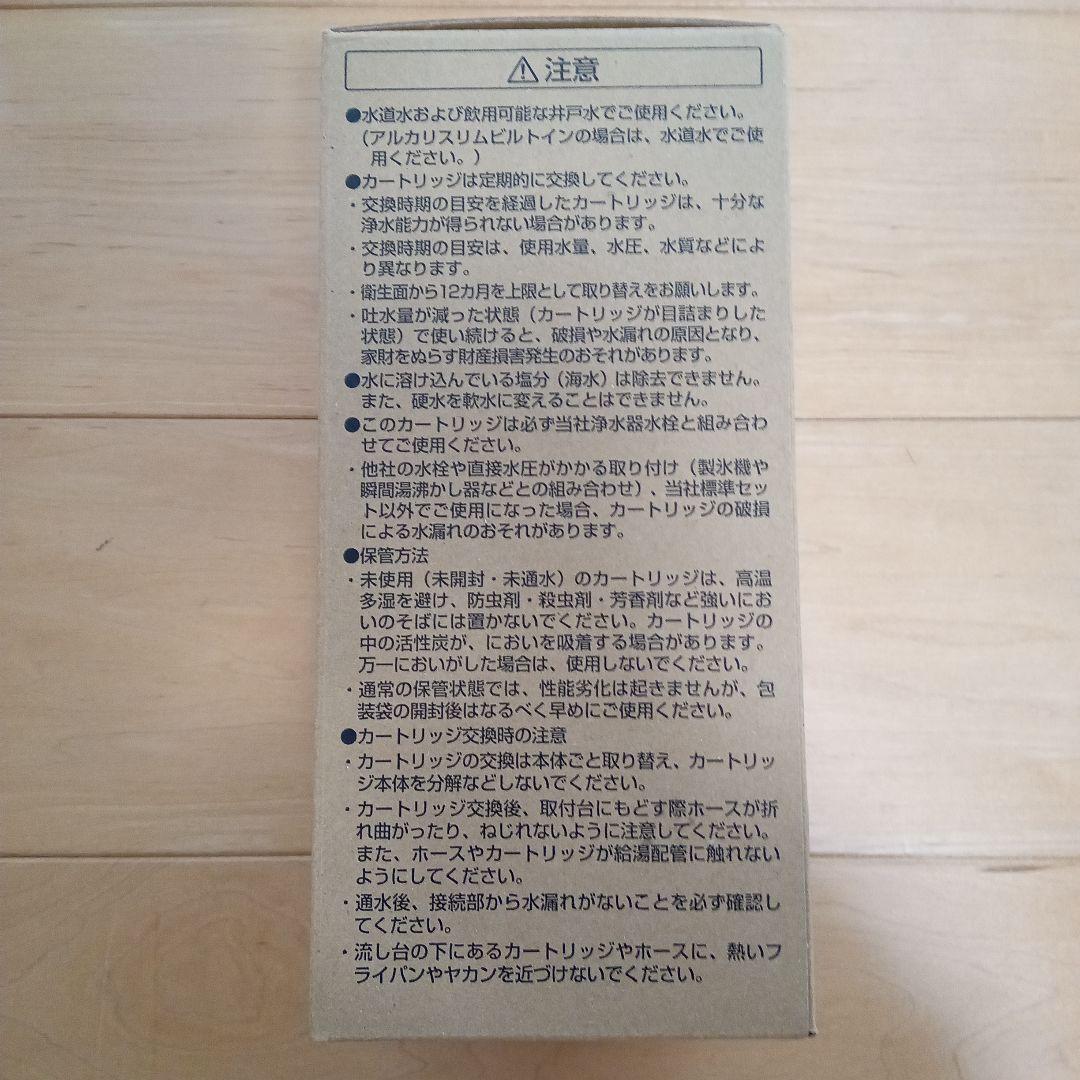 ⚠注意
●水道水および飲用可能な井戸水でご使用ください。
(アルカリスリムビルトインの場合は、水道水でご使
用ください。)
●カートリッジは定期的に交換してください。
・交換時期の目安を経過したカートリッジは、十分な
浄水能力が得られない場合があります。
・交換時期の目安は、使用水量、水圧、水質などによ
り異なります。
・衛生面から12カ月を上限として取り替えをお願いします。
・吐水量が減った状態(カートリッジが目詰まりした
状態)で使い続けると、破損や水漏れの原因となり、
家財をぬらす財産損害発生のおそれがあります。
●水に溶け込んでいる塩分(海水)は除去できません。
また、硬水を軟水に変えることはできません。
●このカートリッジは必ず当社浄水器水栓と組み合わ
せてご使用ください。
・他社の水栓や直接水圧がかかる取り付け(製氷機や
瞬間湯沸かし器などとの組み合わせ)、当社標準セッ
ト以外でご使用になった場合、カートリッジの破損
による水漏れのおそれがあります。
●保管方法
・未使用(未開封・未通水)のカートリッジは、高温
多湿を避け、防虫剤・殺虫剤・芳香剤など強いにお
いのそばには置かないでください。カートリッジの
中の活性炭が、においを吸着する場合があります。
万一においがした場合は、使用しないでください。
・通常の保管状態では、性能劣化は起きませんが、包
装袋の開封後はなるべく早めにご使用ください。
●カートリッジ交換時の注意
・カートリッジの交換は本体ごと取り替え、カートリッ
ジ本体を分解などしないでください。
・カートリッジ交換後、取付台にもどす際ホースが折
れ曲がったり、ねじれないように注意してください。
また、ホースやカートリッジが給湯配管に触れない
ようにしてください。
・通水後、接続部から水漏れがないことを必ず確認し
てください。
・流し台の下にあるカートリッジやホースに、熱いフ
ライパンやヤカンを近づけないでください。